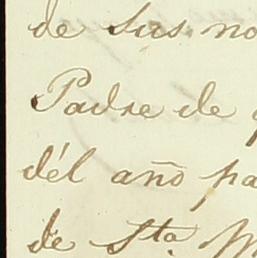 de sus no
Padre de
dél año pa
de Sta. M